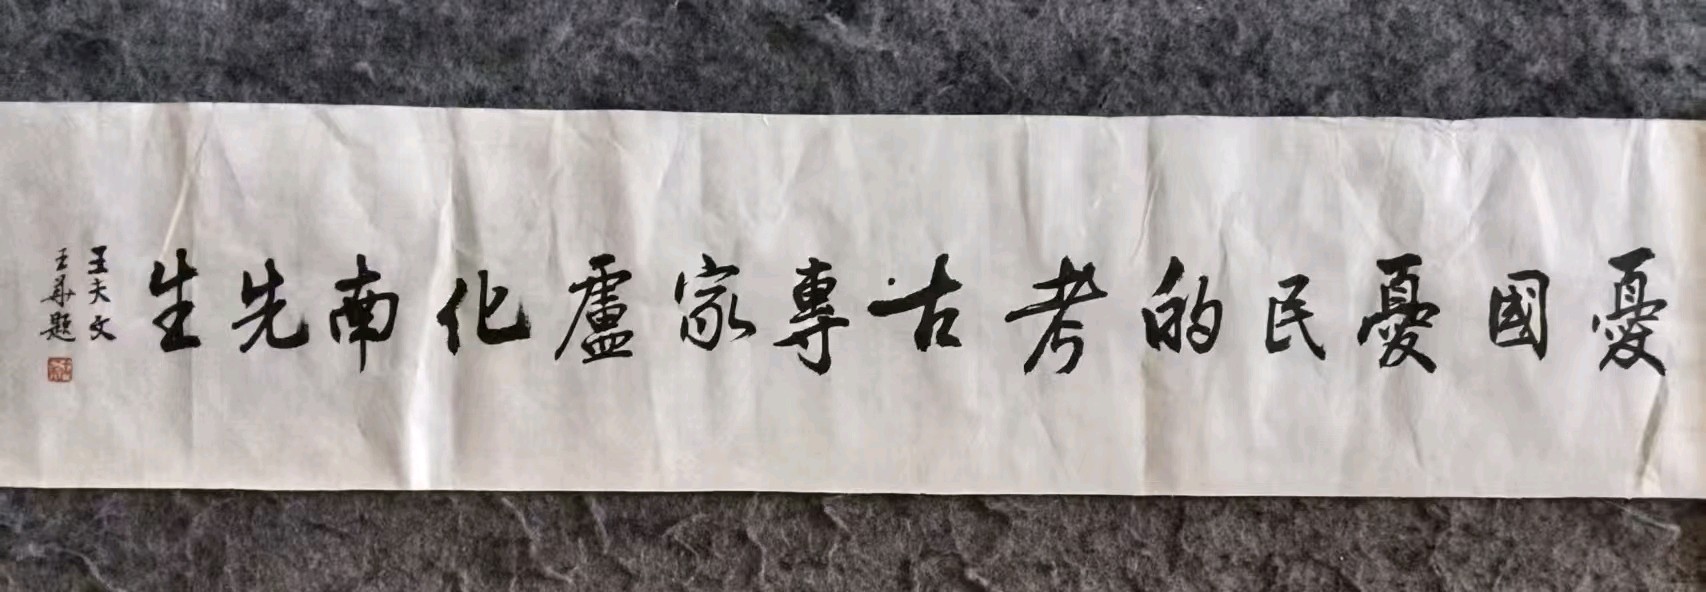 憂國憂民的考古專家盧化南先生
王夫文
王華題